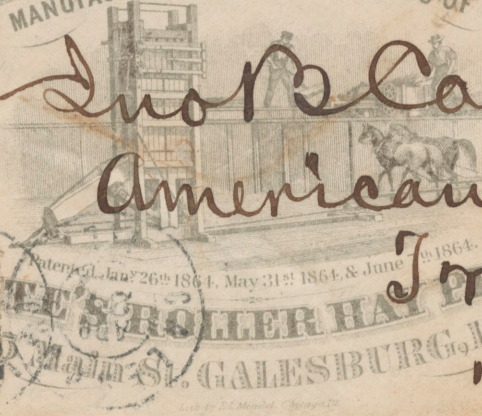 MANUFACTU OF
Jno B Ca
American
Patented Jany 26th 1864, May 31st 1864, & June 7th 1864.
TE'S ROLLER HAY P
Main St. GALESBURG, I
Lith. by Ed. Mendel, Chicago, Ill.